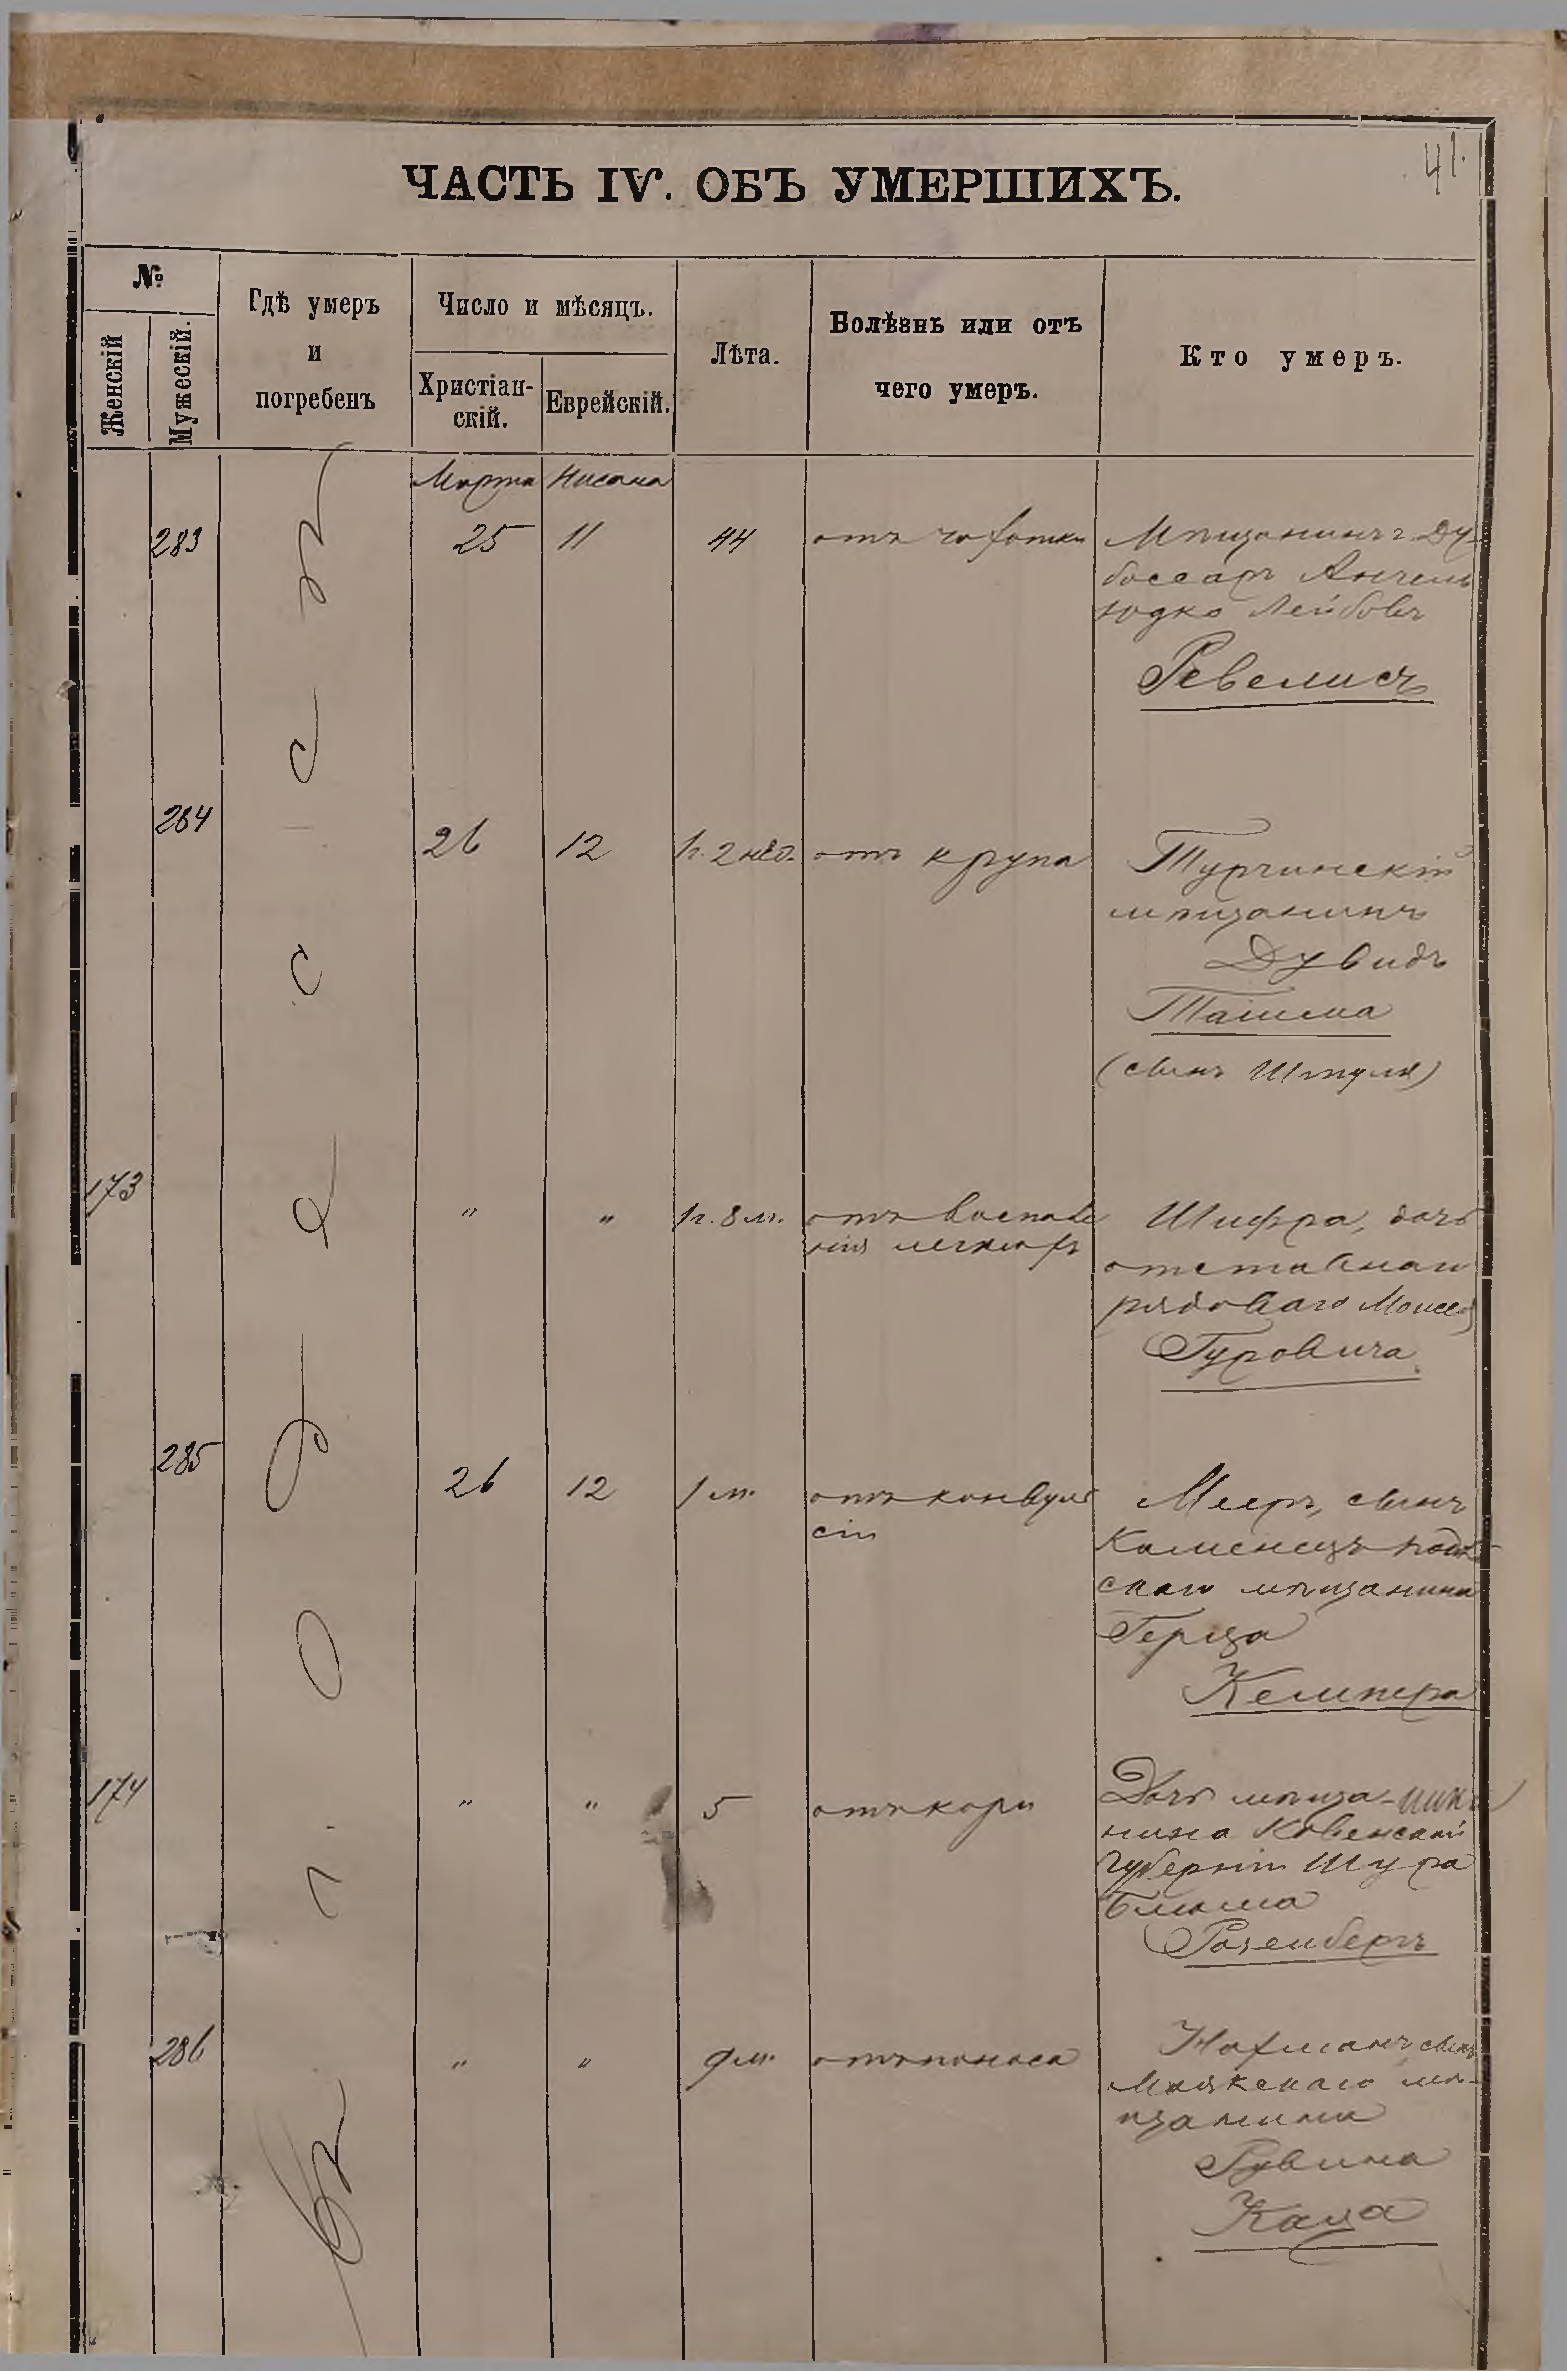 41.
ЧАСТЬ IV. ОБЪ УМЕРШИХЪ.
№
Женскій
Мужескій.
Гдѣ умеръ
и
погребенъ
Число и мѣсяцъ.
Христіан-
скій.
Еврейскій.
Лѣта.
Болѣзнь или отъ
чего умеръ.
Кто умеръ.
въ г. Одессѣ
Марта Нисана
283 25 11 44 отъ чахотки Мѣщанинъ г. Ду-
боссаръ Анчель
Юдко Лейбовъ
Ревелисъ
284 26 12 1 г. 2 нед. отъ крупа Турчинскій
мѣщанинъ
Дувидъ
(сынъ Шмуля)
173 " " 1 г. 8 м. отъ воспале
нія легкихъ
Шифра, дочь
отставнаго
рядоваго Моисея
Гуровича
285 26 12 1 м. отъ конвуль
сіи
Мееръ, сынъ
Каменецъ-под
скаго мѣщанина
Герца
Кемпера
174 " " 5 отъ кори Дочь мѣща-
нина Ковенской
губерніи Шура
Блюма
Розенбергъ
286 " " 9 м. отъ поноса Нахманъ сынъ
Маякскаго мѣ-
щанина
Рувина
Каца